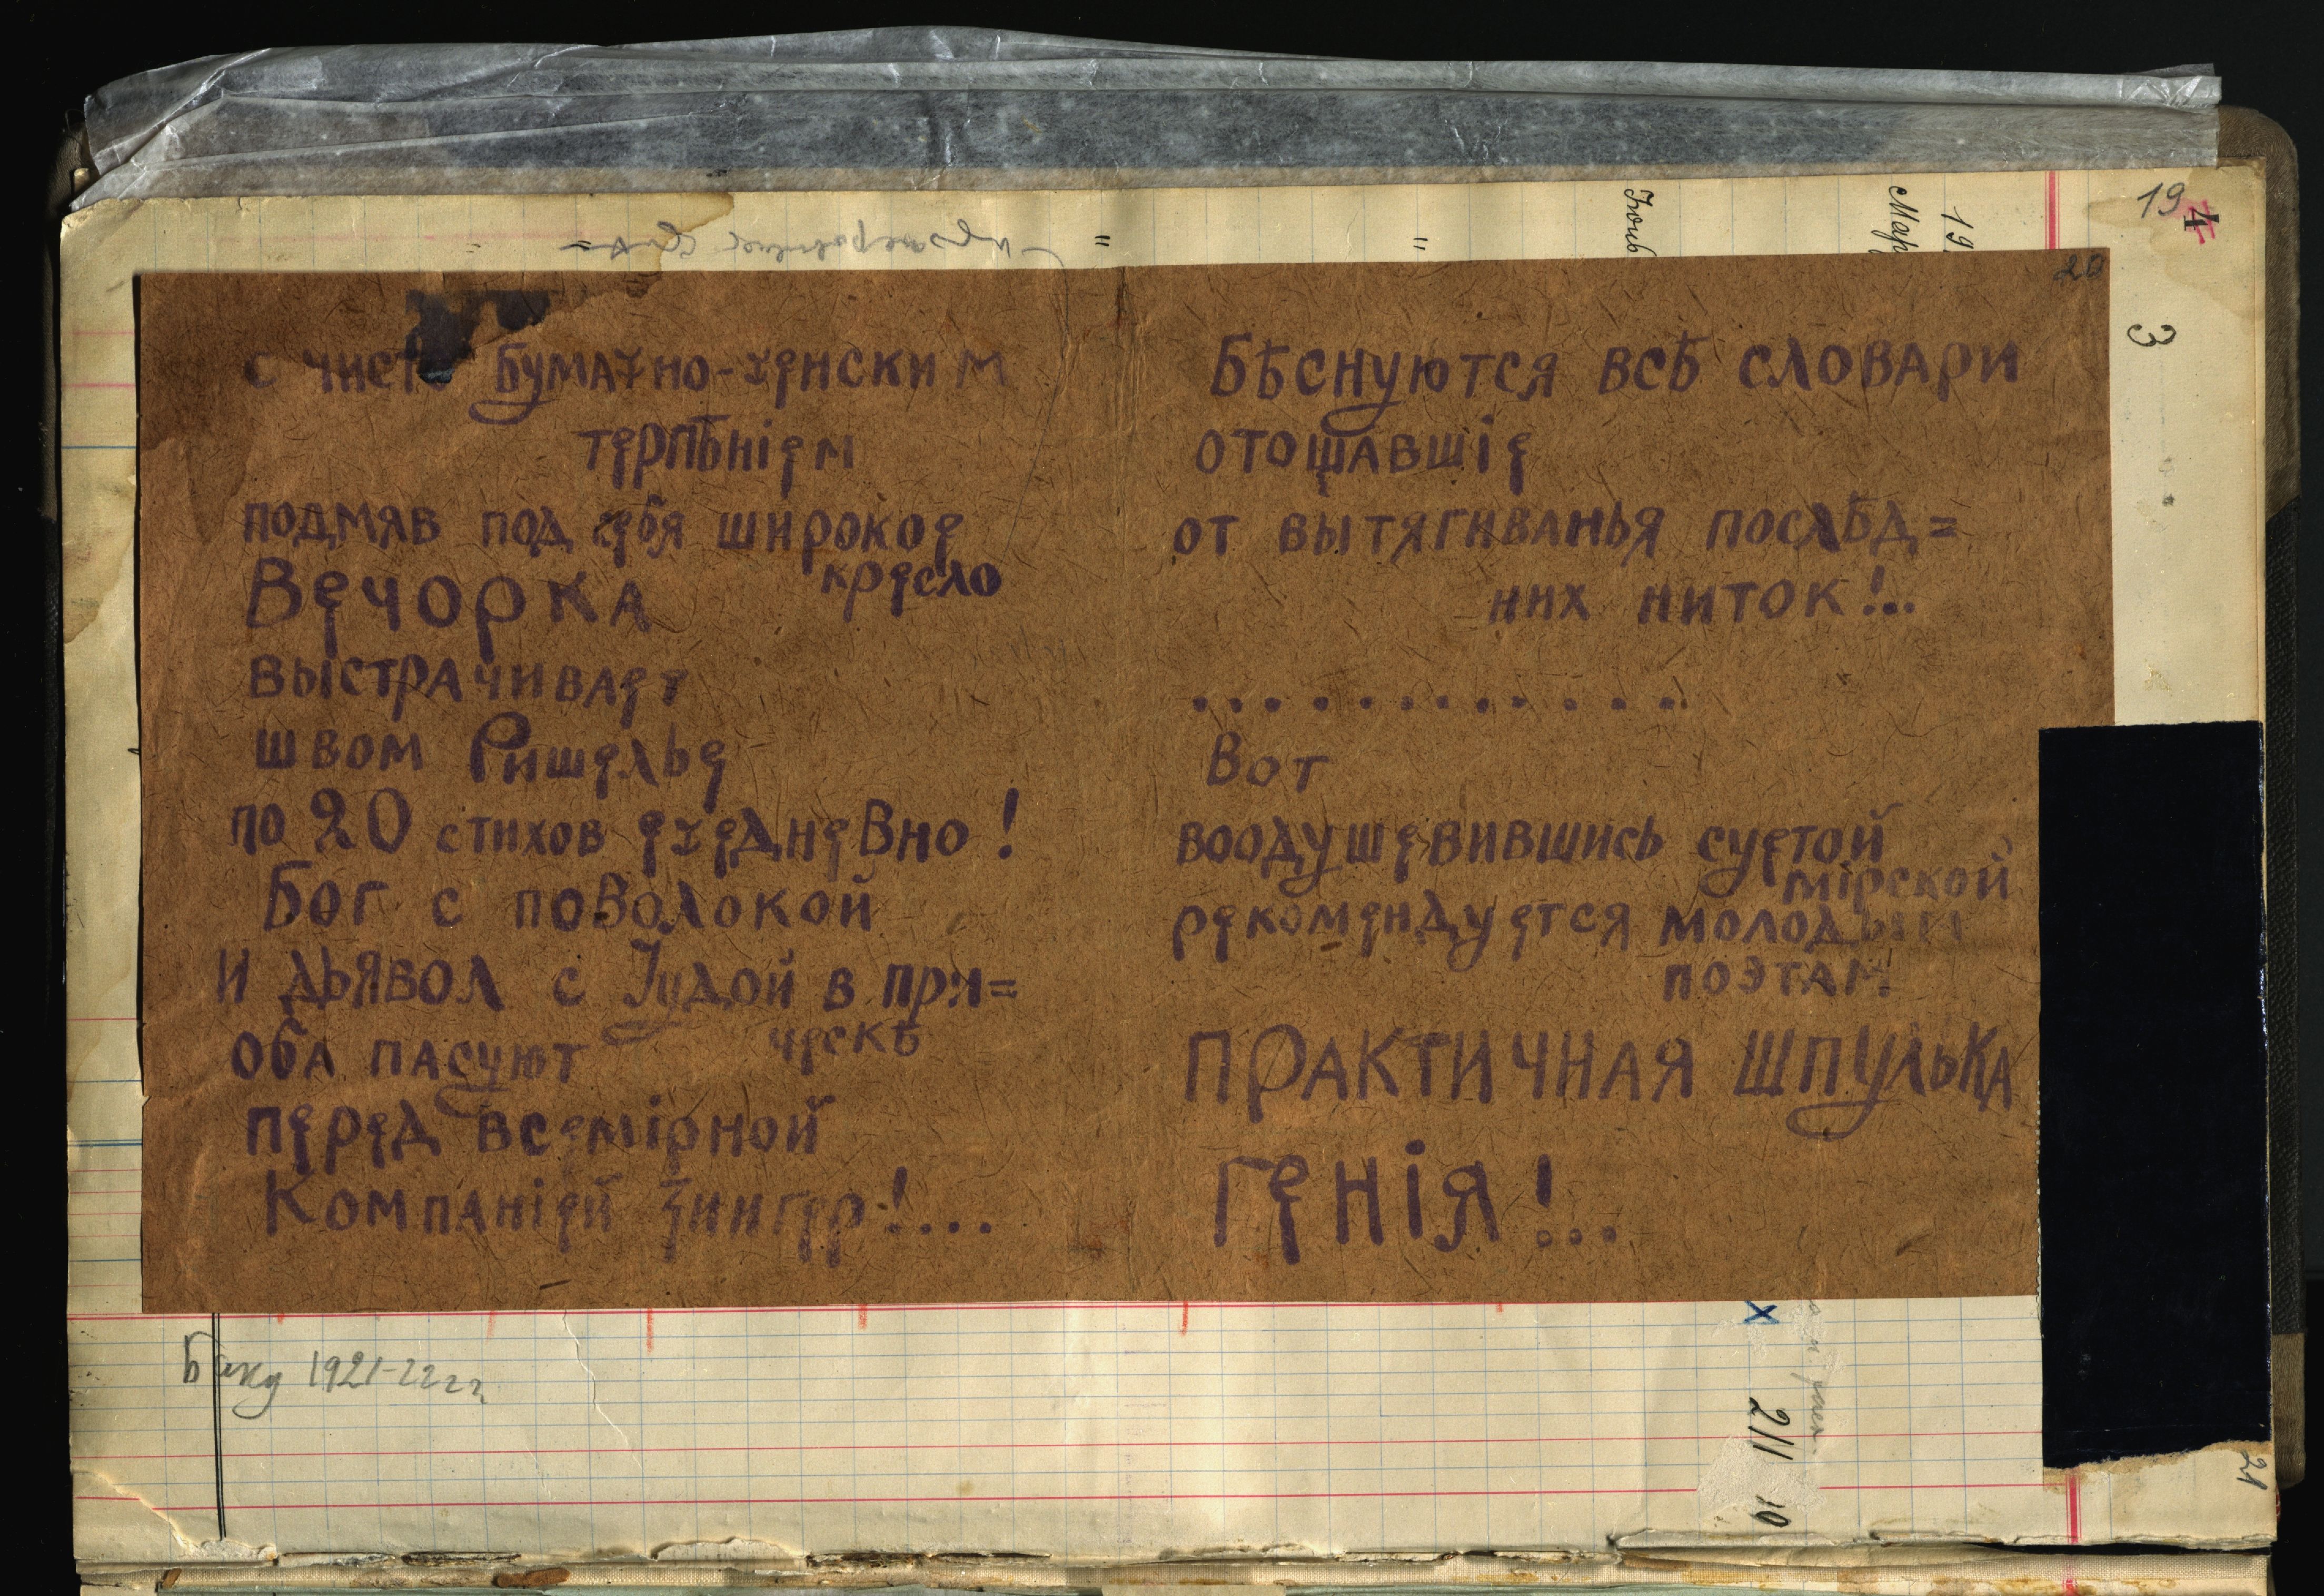 19
4
20
3
19
Мар
Іюнь
с чисто бумажно-женским
терпѣніем
подмяв под себя широкое
кресло
Вечорка
выстрачивает
швом Ришелье
по 20 стихов ежедневно!
Бог с поволокой
и дьявол с Іудой в при=
ческѣ
оба пасуют
перед всемірной
Компаніей Зингер!...
Бѣснуются всѣ словари
отощавшіе
от вытягиванья послѣд=
них ниток!..
. . . . . . . . . . . . .
Вот
воодушевившись суетой
мірской
рекомендуется молодым
поэтам:
практичная шпулька
генія!...
Баку 1921-22 гг
х
211 10
21